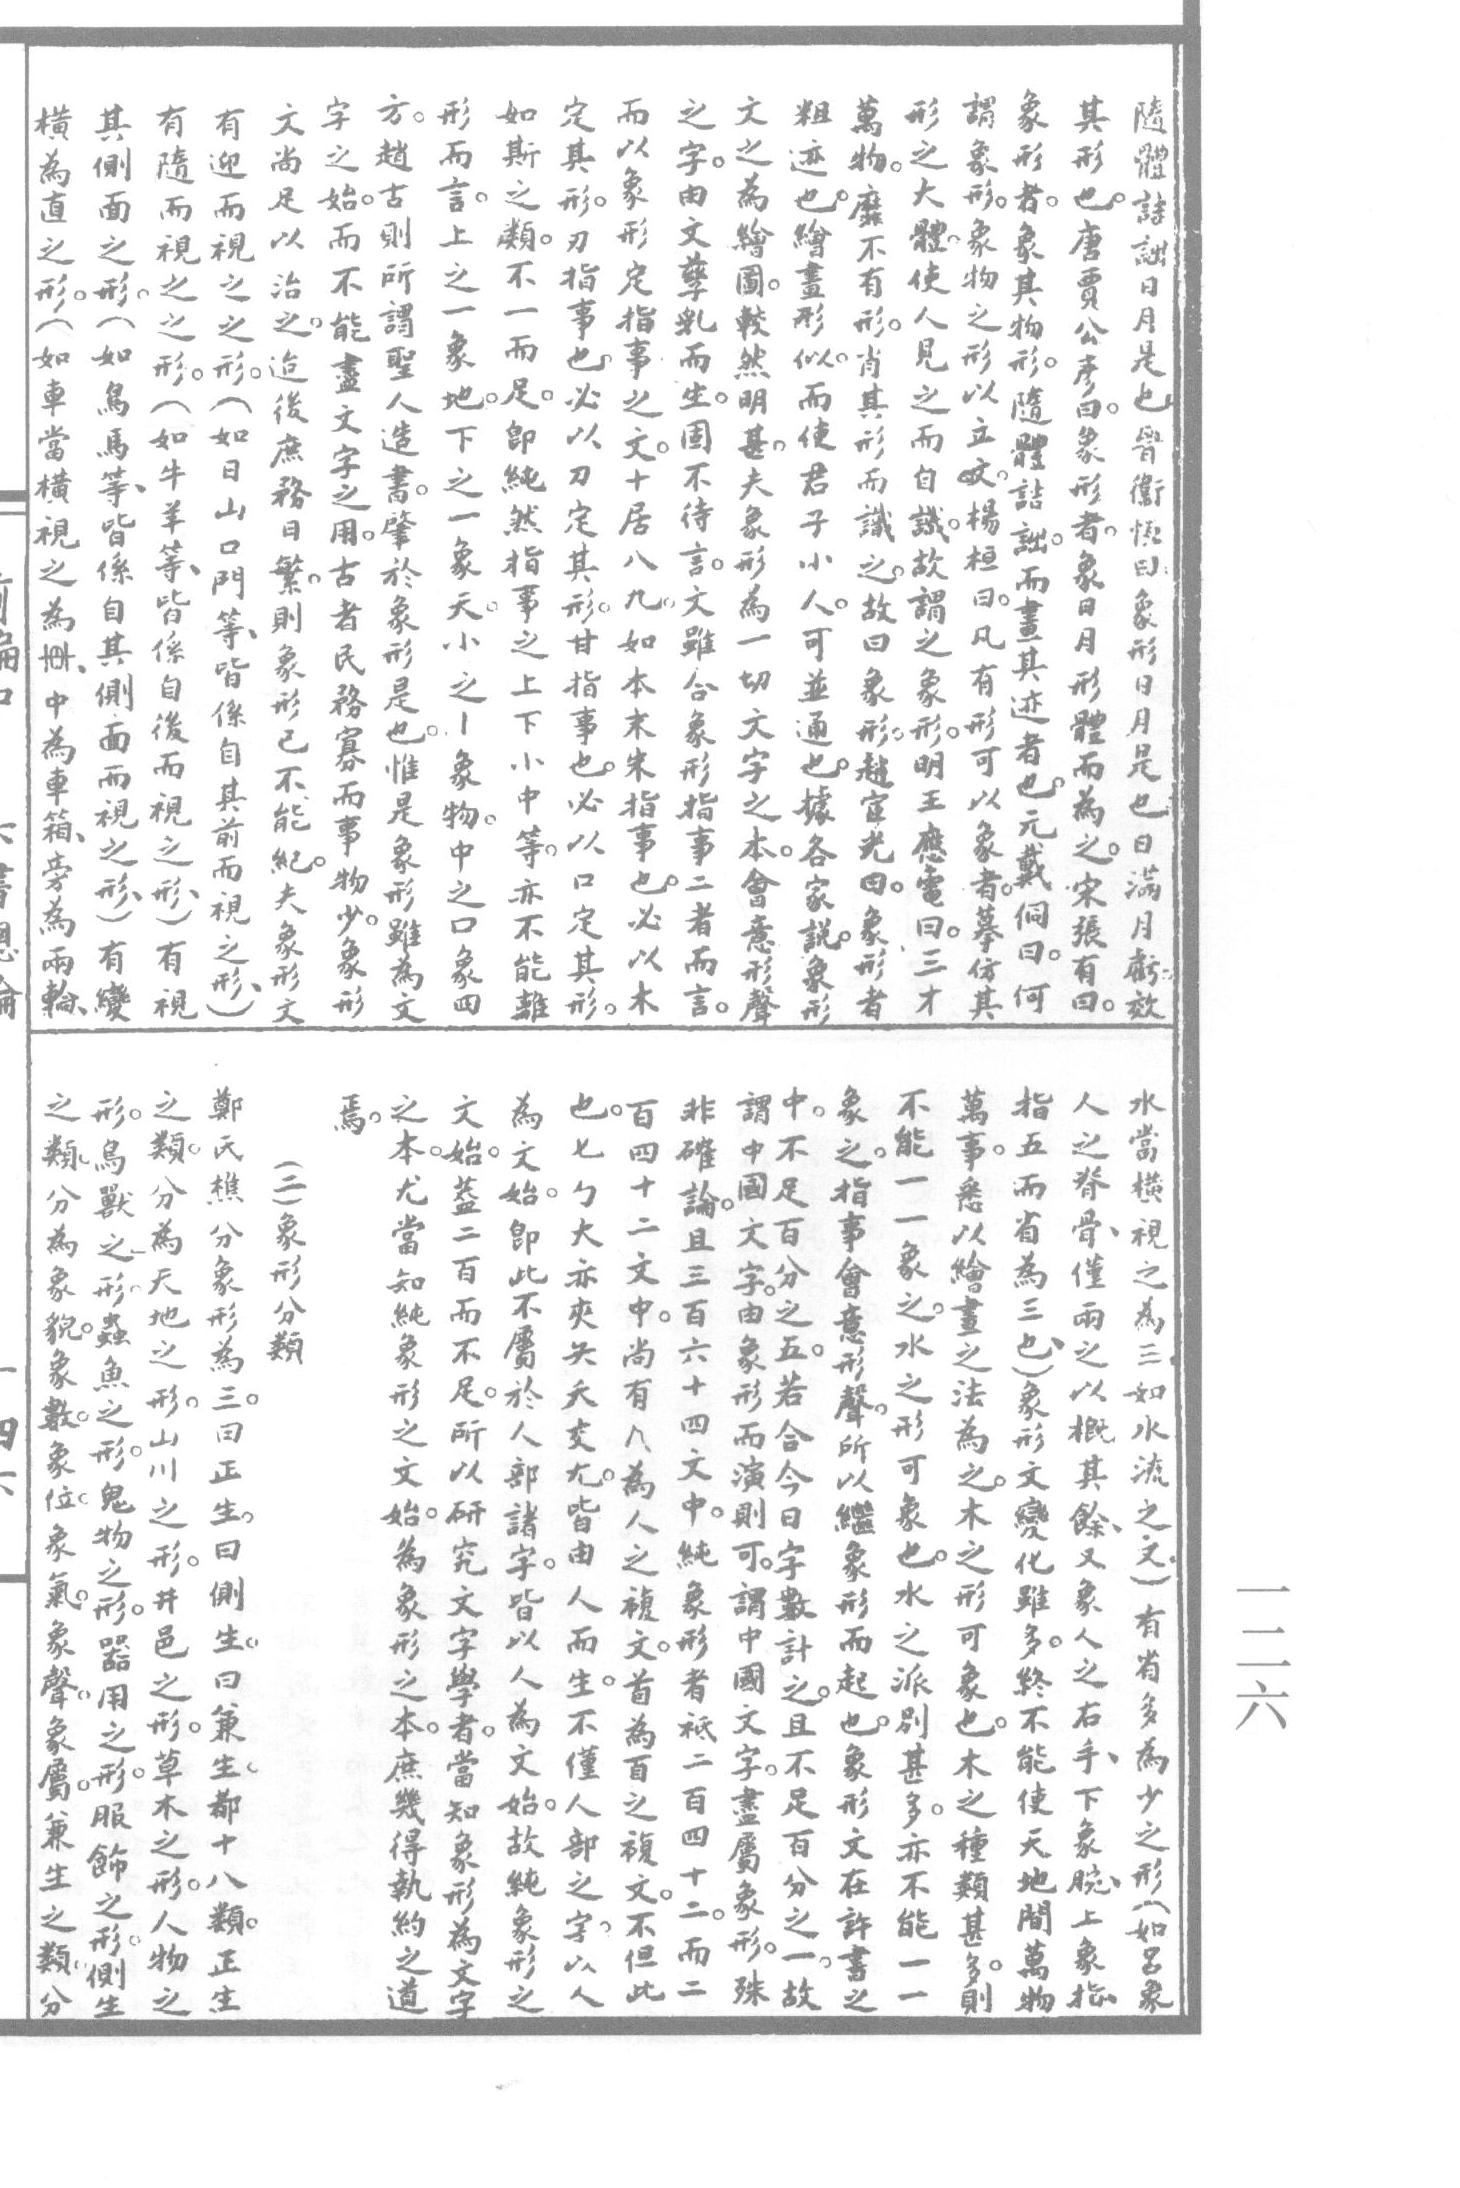 隨體詰詘日月是也晉衞恆曰象形日月是也日滿月虧效
其形也。唐賈公彥曰。象形者。象日月形體而為之。宋張有曰。
象形者。象其物形。隨體詰詘。而畫其迹者也。元戴侗曰。何
謂象形。象物之形以立文。楊桓曰。凡有形可以象者。摹仿其
形之大體。使人見之而自識。故謂之象形。明王應電曰。三才
萬物。靡不有形。肖其形而識之。故曰象形。趙宧光曰。象形者
粗迹也。繪畫形似。而使君子小人。可並通也。據各家說。象形
文之為繪圖。較然明甚。夫象形為一切文字之本。會意形聲
之字。由文孳乳而生。固不待言。文雖合象形指事二者而言。
而以象形定指事之文。十居八九。如本末朱指事也。必以木
定其形。刃指事也。必以刀定其形。甘指事也。必以口定其形。
如斯之類。不一而足。卽純然指事之上下小中等。亦不能離
形而言。上之一象地。下之一象天。小之丨象物。中之口象四
方。趙古則所謂聖人造書。肇於象形是也。惟是象形雖為文
字之始。而不能盡文字之用。古者民務寡而事物少。象形
文尚足以治之。迨後庶務日繁。則象形已不能紀。夫象形文
有迎而視之之形。（如日山口門等、皆係自其前而視之形、）
有隨而視之之形。（如牛羊等、皆係自後而視之形、）有視
其側面之形。（如鳥馬等、皆係自其側面而視之形、）有變
橫為直之形。（如車當橫視之為、中為車箱、旁為兩輪、
水當橫視之為三如水流之文）有省多為少之形（如呂象
人之脊骨、僅兩之以概其餘、又象人之右手、下象腕、上象指
指五而省為三也、）象形文變化雖多。終不能使天地間萬物
萬事。悉以繪畫之法為之。木之形可象也。木之種類甚多。則
不能一一象之。水之形可象也。水之派別甚多。亦不能一一
象之。指事會意形聲。所以繼象形而起也。象形文在許書之
中。不足百分之五。若合今日字數計之。且不足百分之一。故
謂中國文字。由象形而演則可。謂中國文字。盡屬象形。殊
非確論。且三百六十四文中。純象形者祗二百四十二。而二
百四十二文中。尚有儿為人之複文。𦣻為百之複文。不但此
也。匕勹大亦夾夨夭交尢。皆由人而生。不僅人部之字。以人
為文始。卽此不屬於人部諸字。皆以人為文始。故純象形之
文始。葢二百而不足。所以研究文字學者。當知象形為文字
之本。尤當知純象形之文始。為象形之本。庶幾得執約之道
焉。
（二）象形分類
鄭氏樵分象形為三。曰正生。曰側生。曰兼生。都十八類。正生
之類。分為天地之形。山川之形。井邑之形。草木之形。人物之
形。鳥獸之形。蟲魚之形。鬼物之形。器用之形。服飾之形。側生
之類。分為象貌。象數。象位。象氣。象聲。象屬。兼生之類。分
一二六